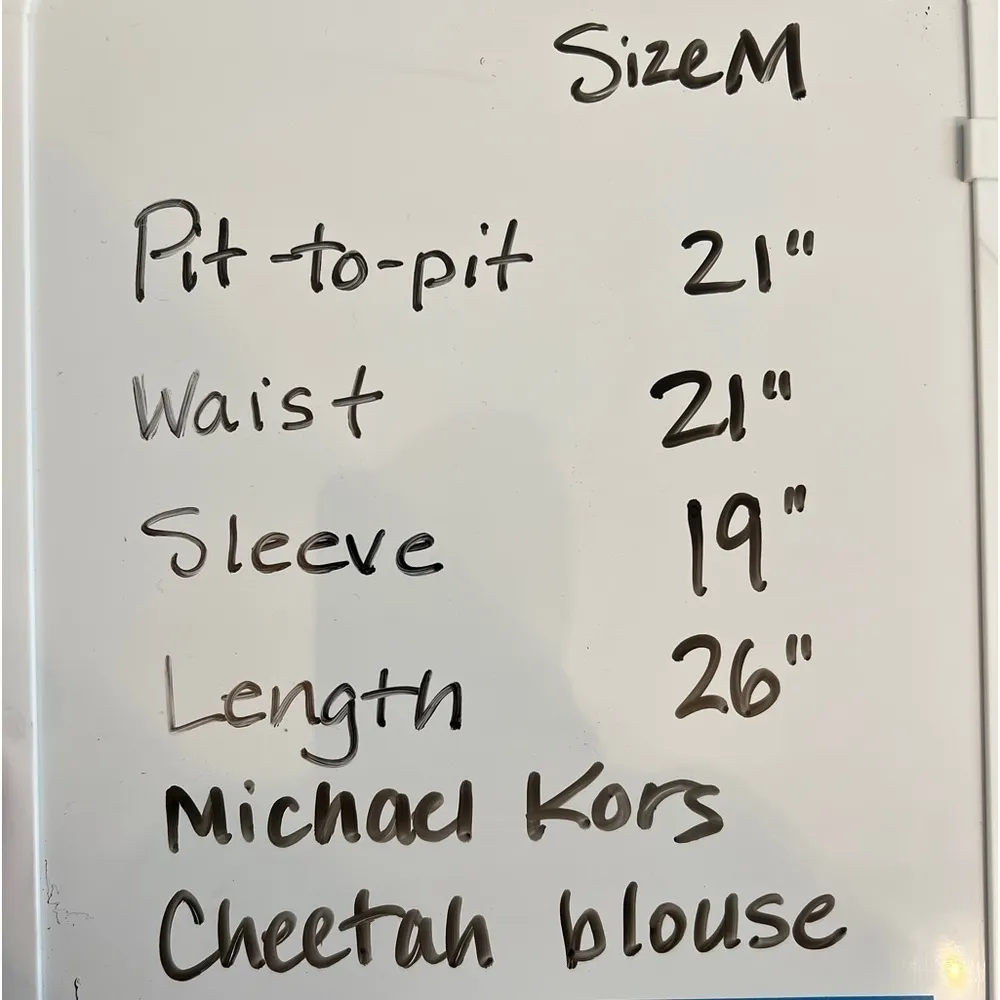 Size M
Pit-to-pit 21"
Waist 21"
Sleeve 19"
Length 26"
Michael Kors
Cheetah blouse